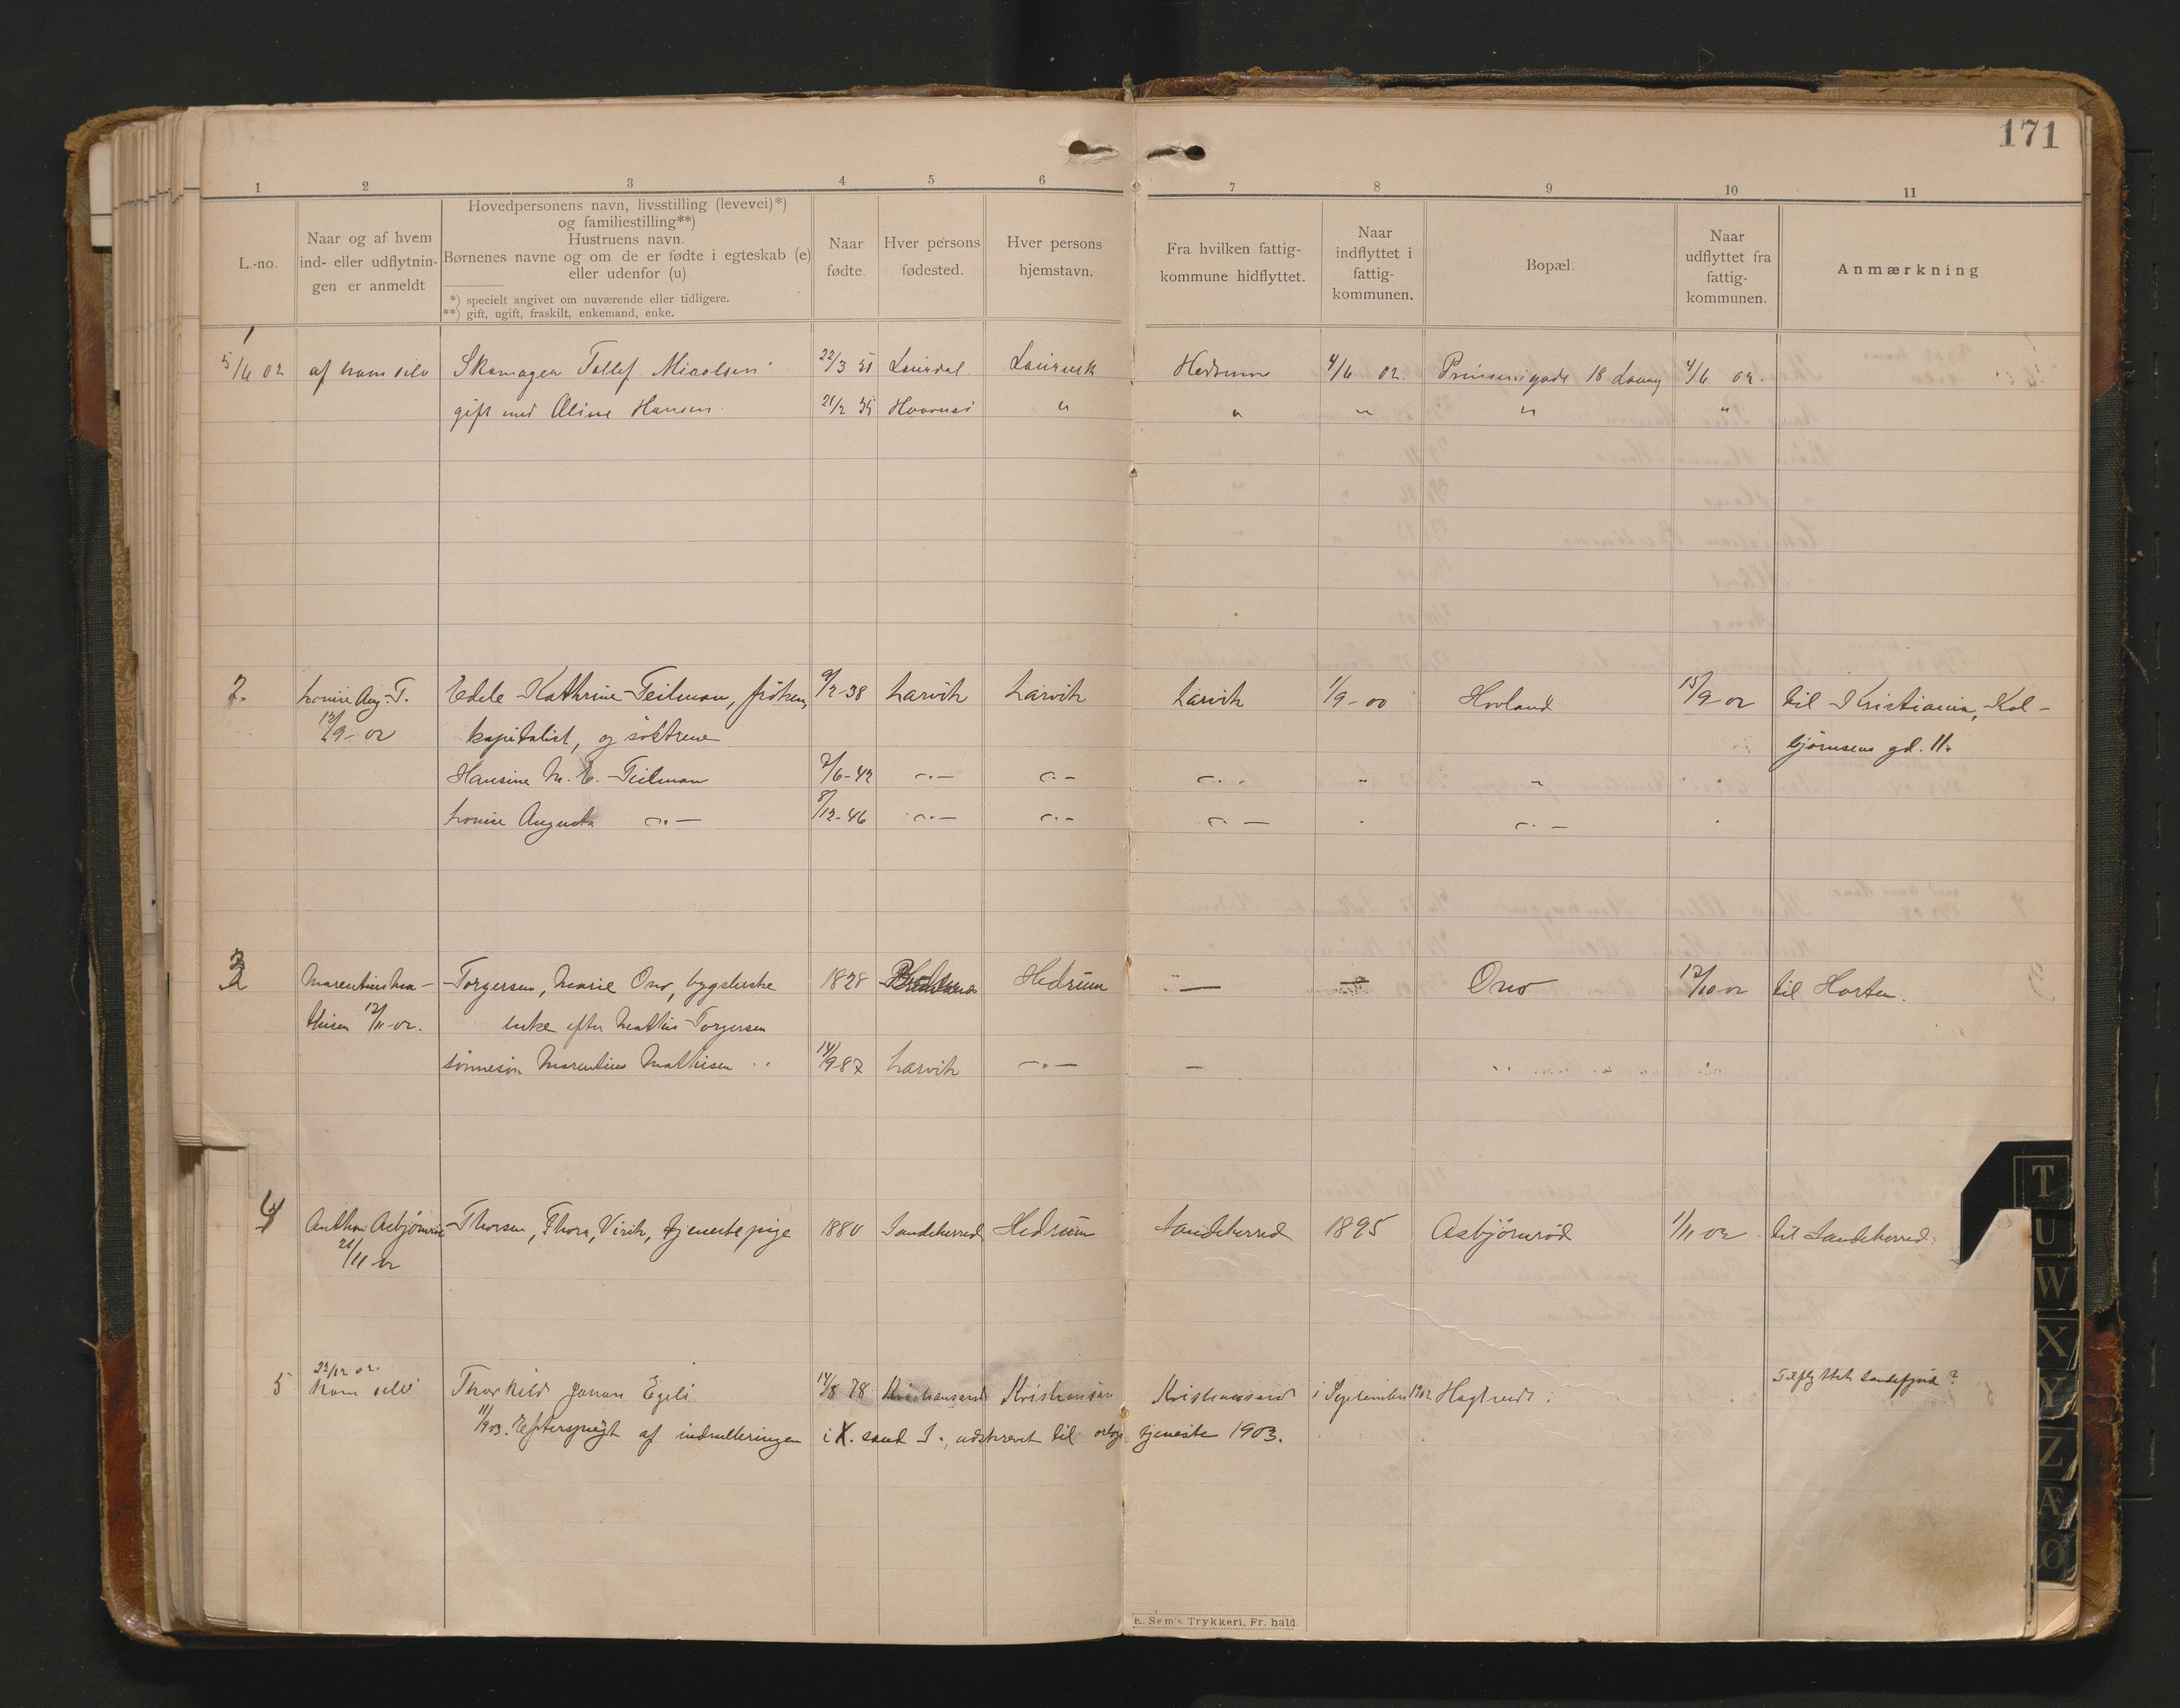 171
1 2 3 4 5 6 7 8 9 10 11
L.-no.
Naar og af hvem
ind- eller udflytnin-
gen er anmeldt
Hovedpersonens navn, livsstilling (levevei)*)
og familiestilling**)
Hustruens navn.
Børnenes navne og om de er fødte i egteskab (e)
eller udenfor (u)
*) specielt angivet om nuværende eller tidligere.
**) gift, ugift, fraskilt, enkemand, enke.
Naar
fødte.
Hver persons
fødested.
Hver persons
hjemstavn.
Fra hvilken fattig-
kommune hidflyttet.
Naar
indflyttet i
fattig-
kommunen.
Bopæl.
Naar
udflyttet fra
fattig-
kommunen.
Anmærkning
1
5/6 02 af ham selv Skomager Tollef Nicolsen 22/3 Laurdal Laurvik Hedrum 4/6 02. Prinsensgade 18 4/6 02.
gift med Oline Hansen 21/2 " " " " "
2. Louise Aug. T. Edele Kathrine Teilman, frøken, 9/2-38 Larvik Larvik Larvik 1/9-00 Hovland 15/9-02 til Kristiania, Kol-
12/9-02 kapitalist, og søstrene bjørnsens gd. 11.
Hansine M. E. Teilman 2/6-42 -.- -.- -.- " "
Louise Augusta -.- 8/12-46 -.- -.- -.- -.-
3 Marentius Ma- Torgersen, Marie Ono, bygslerske 1828 Hedrum - Ono 12/10 02 til Horten.
thisen 12/11-02. enke efter Mathis Torgersen
sønnesøn Marentius Mathisen 14/9 87 Larvik -.- -
4 Anthon Asbjørnrød Thorsen, Thora, Virik, tjenestepige 1880 Sandeherred Hedrum Sandeherred 1895 Asbjørnrød 1/11 02 til Sandeherred.
21/11 02
5 22/12 02.
ham selv Thorkild Johan Egeli 14/8 78 Kristiansand Kristiansand Kristiansand i September 1902 Hagtvedt. Tilflyttet Sandefjord?
11/1 903. Efterspurgt af indrulleringen i X. sand S., udskrevet til orlogs tjeneste 1903.
E. Sem's Trykkeri, Fr. hald.
T
U
W
X
Y
Z
Æ
Ø